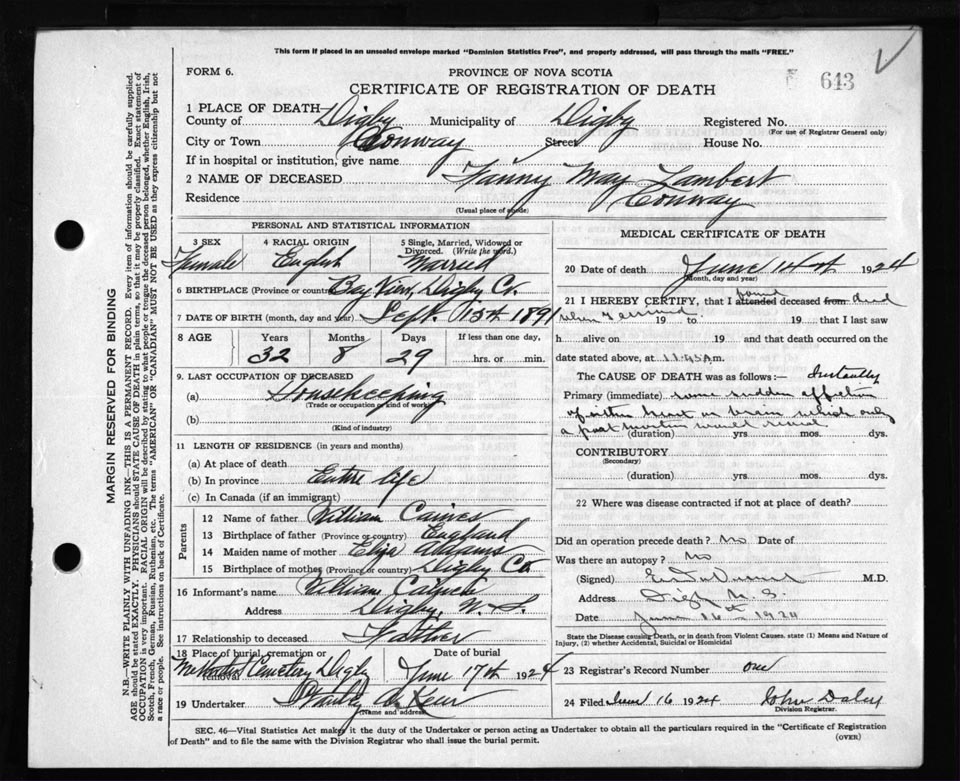 This form if placed in an unsealed envelope marked "Dominion Statistics Free", and properly addressed, will pass through the mails "FREE."
FORM 6. PROVINCE OF NOVA SCOTIA 643
CERTIFICATE OF REGISTRATION OF DEATH
1 PLACE OF DEATH
County of Digby Municipality of Digby Registered No.
(For use of Registrar General only)
City or Town Conway Street House No.
If in hospital or institution, give name
2 NAME OF DECEASED Fanny May Lambert
Residence Conway
(Usual place of abode)
PERSONAL AND STATISTICAL INFORMATION
3 SEX 4 RACIAL ORIGIN 5 Single, Married, Widowed or Divorced. (Write the word.)
Female English Married
6 BIRTHPLACE (Province or country) Bay View, Digby Co.
7 DATE OF BIRTH (month, day and year) Sept. 15th 1891
8 AGE Years Months Days If less than one day,
32 8 29 hrs. or min.
9. LAST OCCUPATION OF DECEASED
(a) Housekeeping
(Trade or occupation or kind of work)
(b)
(Kind of industry)
11 LENGTH OF RESIDENCE (in years and months)
(a) At place of death
(b) In province Entire life
(c) In Canada (if an immigrant)
Parents
12 Name of father William
13 Birthplace of father (Province or country) England
14 Maiden name of mother Eliza Adams
15 Birthplace of mother (Province or country) Digby Co.
16 Informant's name William
Address Digby, N. S.
17 Relationship to deceased Father
18 Place of burial, cremation or removal Date of burial
Methodist Cemetery Digby June 17th 1924
19 Undertaker
(Name and address)
MEDICAL CERTIFICATE OF DEATH
20 Date of death June 14th 1924
(Month, day and year)
21 I HEREBY CERTIFY, that I attended found deceased from dead
when I arrived 19 to 19 that I last saw
h alive on 19 and that death occurred on the
date stated above, at 11.45 A m.
The CAUSE OF DEATH was as follows:— Instantly
Primary (immediate) some sudden affection
of either heart or brain which only
a post mortem would reveal
(duration) yrs. mos. dys.
CONTRIBUTORY
(Secondary)
(duration) yrs. mos. dys.
22 Where was disease contracted if not at place of death?
Did an operation precede death? No Date of
Was there an autopsy? No
(Signed) M.D.
Address Digby N. S.
Date June 16th 1924
State the Disease causing Death, or in death from Violent Causes, state (1) Means and Nature of Injury, (2) whether Accidental, Suicidal or Homicidal
23 Registrar's Record Number one
24 Filed June 16 1924 John Daley
Division Registrar.
SEC. 46—Vital Statistics Act makes it the duty of the Undertaker or person acting as Undertaker to obtain all the particulars required in the "Certificate of Registration
of Death" and to file the same with the Division Registrar who shall issue the burial permit. (OVER)
MARGIN RESERVED FOR BINDING
N.B.—WRITE PLAINLY WITH UNFADING INK—THIS IS A PERMANENT RECORD. Every item of information should be carefully supplied.
AGE should be stated EXACTLY. PHYSICIANS should STATE CAUSE OF DEATH in plain terms, so that it may be properly classified. Exact statement of
OCCUPATION is very important. RACIAL ORIGIN will be described by stating to what people or tongue the deceased person belonged, whether English, Irish,
Scotch, French, German, Russian, Ruthenian, etc. The terms "AMERICAN" or "CANADIAN" MUST NOT BE USED as they express citizenship but not
a race or people. See instructions on back of Certificate.